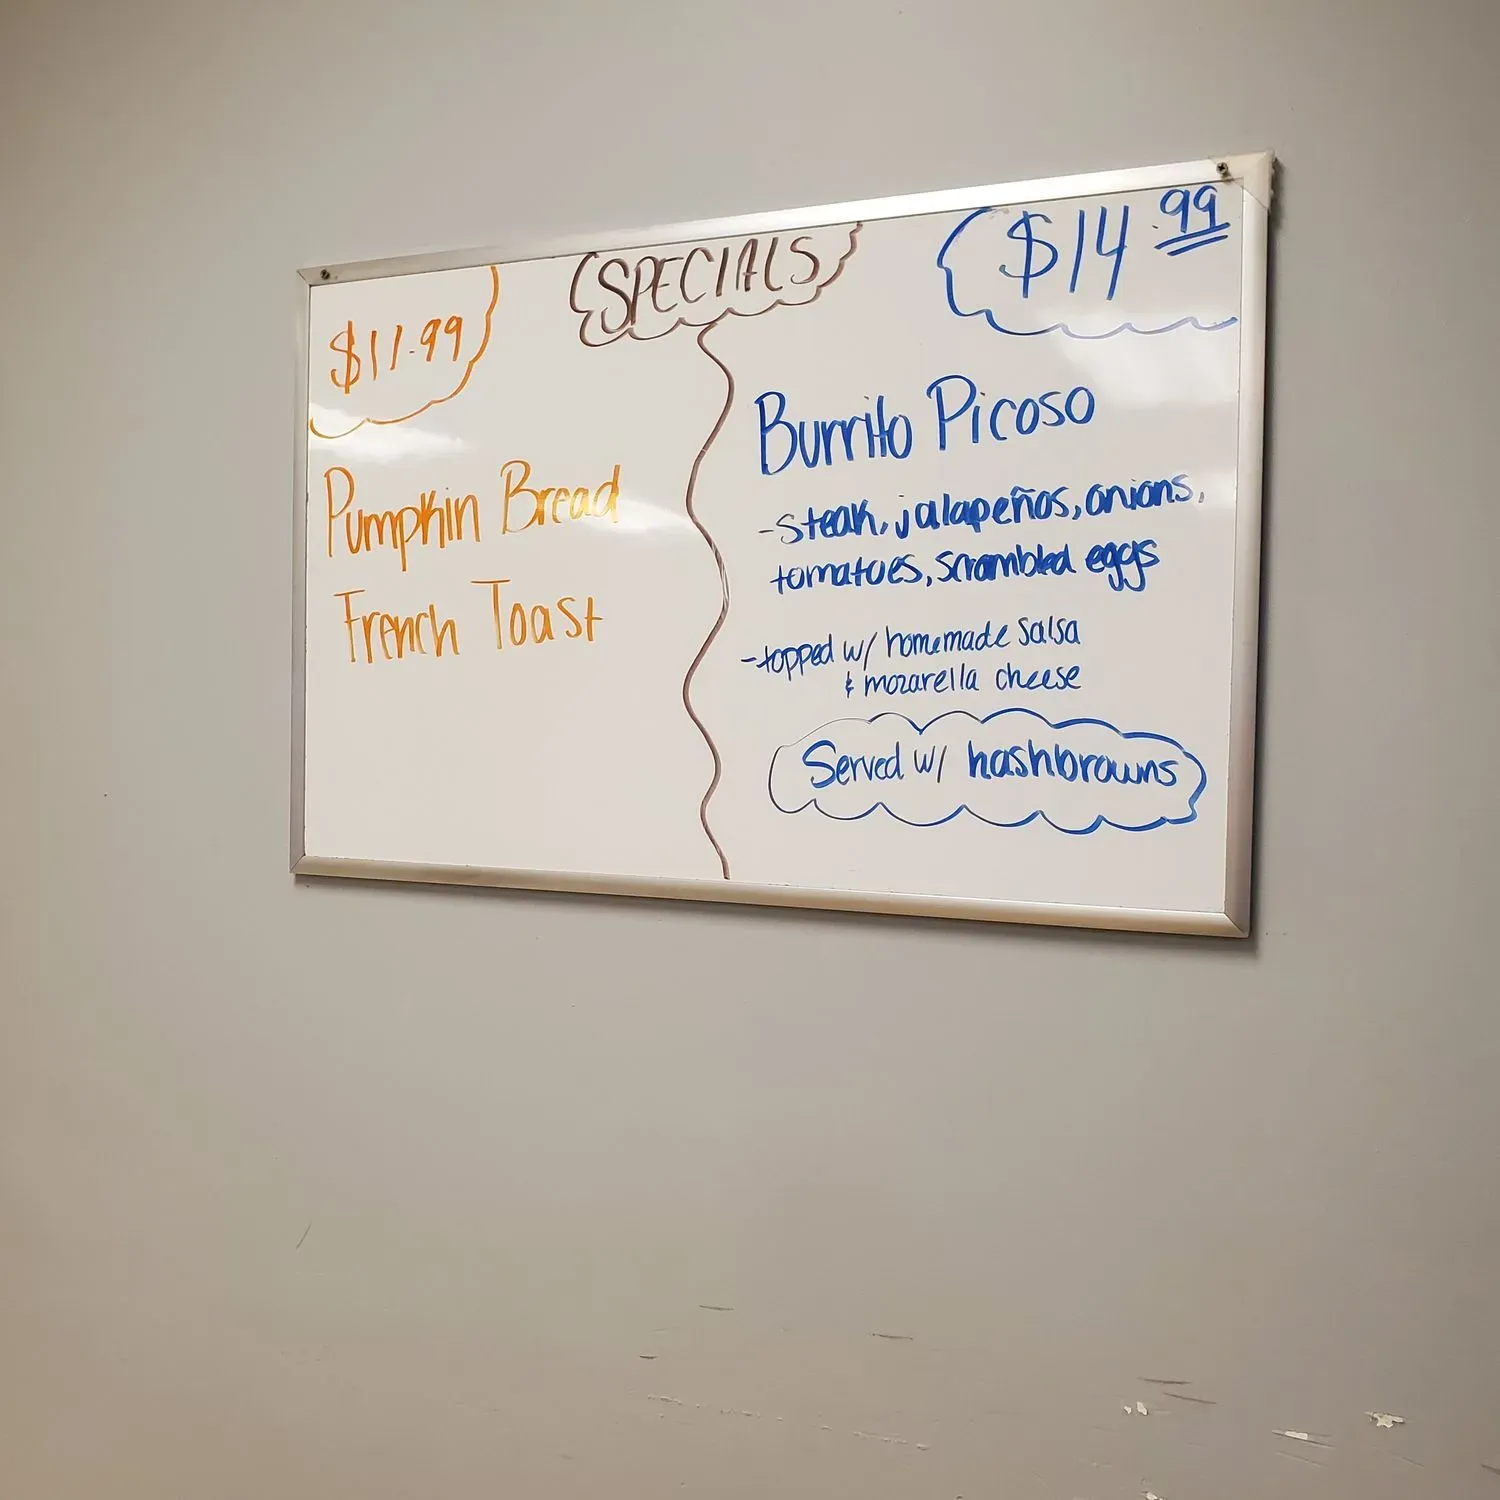 SPECIALS
$11.99
Pumpkin Bread
French Toast
$14.99
Burrito Picoso
-steak, jalapeños, onions,
tomatoes, scrambled eggs
-topped w/ homemade salsa
& mozarella cheese
Served w/ hashbrowns